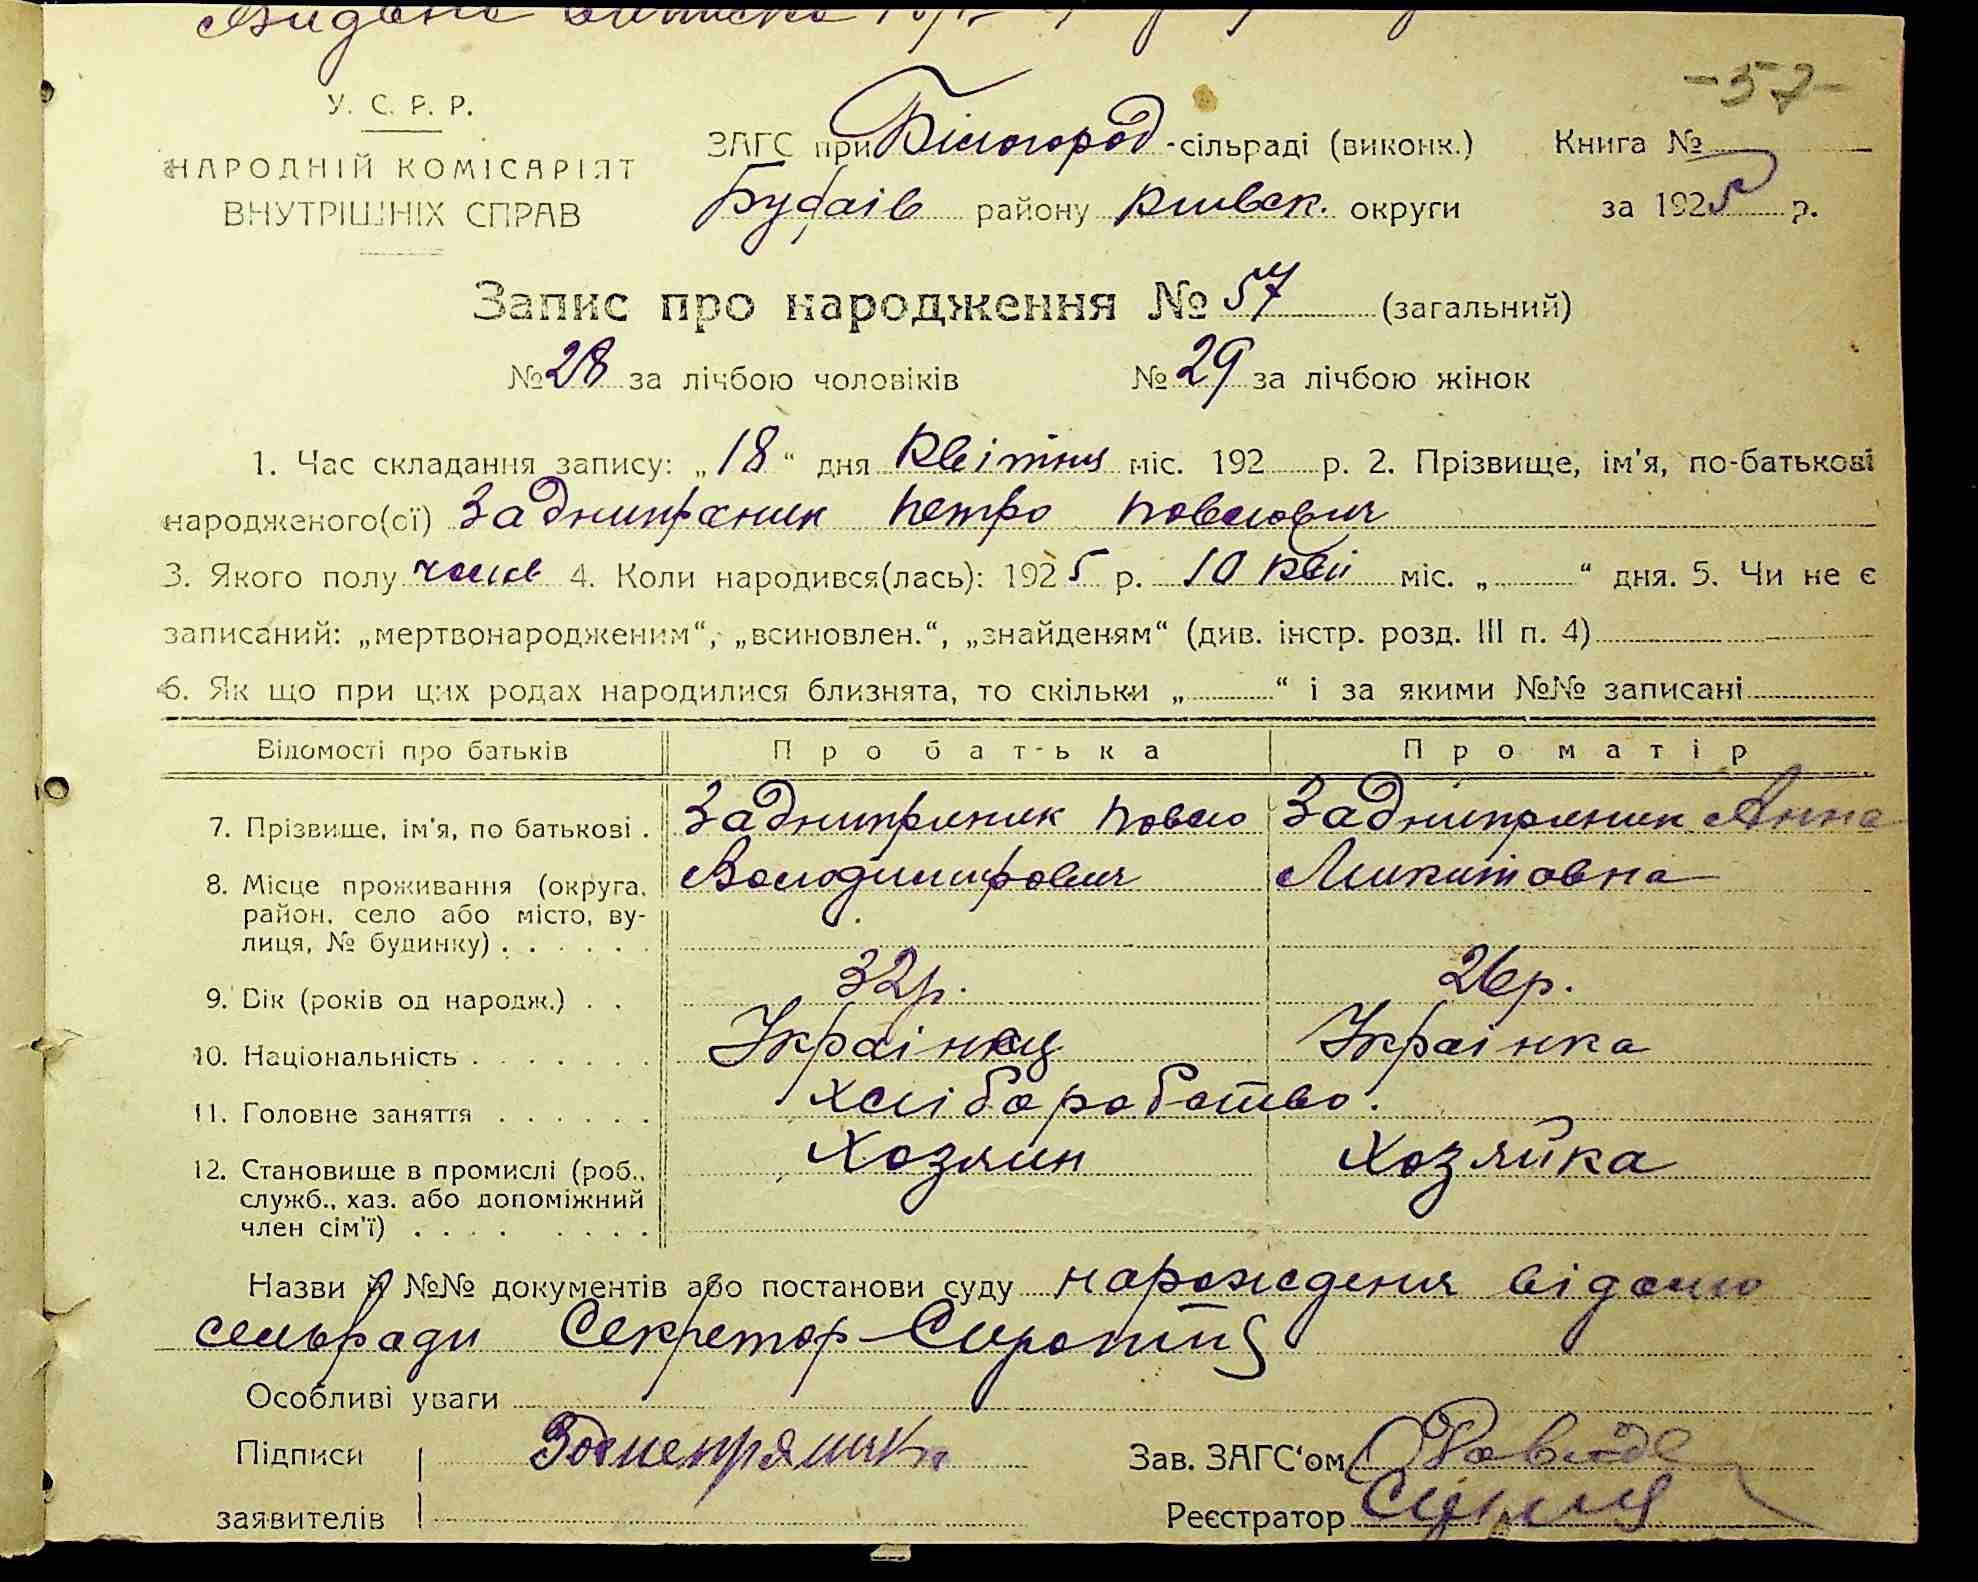 Видано виписка
-57-
У. С. Р. Р.
НАРОДНІЙ КОМІСАРІЯТ
ВНУТРІШНІХ СПРАВ
ЗАГС при Білогород -сільраді (виконк.) Книга №
Будаїв району Київск. округи за 1925 р.
Запис про народження № 57 (загальний)
№ 28 за лічбою чоловіків № 29 за лічбою жінок
1. Час складання запису: „18“ дня Квітня міс. 192 р. 2. Прізвище, ім'я, по-батькові
народженого(ої) Заднипряник Петро Павлович
3. Якого полу чолов 4. Коли народився(лась): 1925 р. 10 Кві міс. „ “ дня. 5. Чи не є
записаний: „мертвонародженим“, „всиновлен.“, „знайденям“ (див. інстр. розд. III п. 4)
6. Як що при цих родах народилися близнята, то скільки „ “ і за якими №№ записані
Відомості про батьків Про батька Про матір
7. Прізвище, ім'я, по батькові . Заднипряник Павло Заднипряник Анна
8. Місце проживання (округа, Володимирович Микитовна
район, село або місто, ву-
лиця, № будинку) . . . . . .
9. Вік (років од народж.) . . 32р. 26р.
10. Національність . . . . . . . Українец Українка
11. Головне заняття . . . . . . Хліборобство.
12. Становище в промислі (роб., Хозяин Хозяйка
служб., хаз. або допоміжний
член сім'ї) . . . . . . . .
Назви й №№ документів або постанови суду нарождения відомо
сельради Секретар
Особливі уваги
Підписи Заднепряник Зав. ЗАГС'ом
заявителів Реєстратор